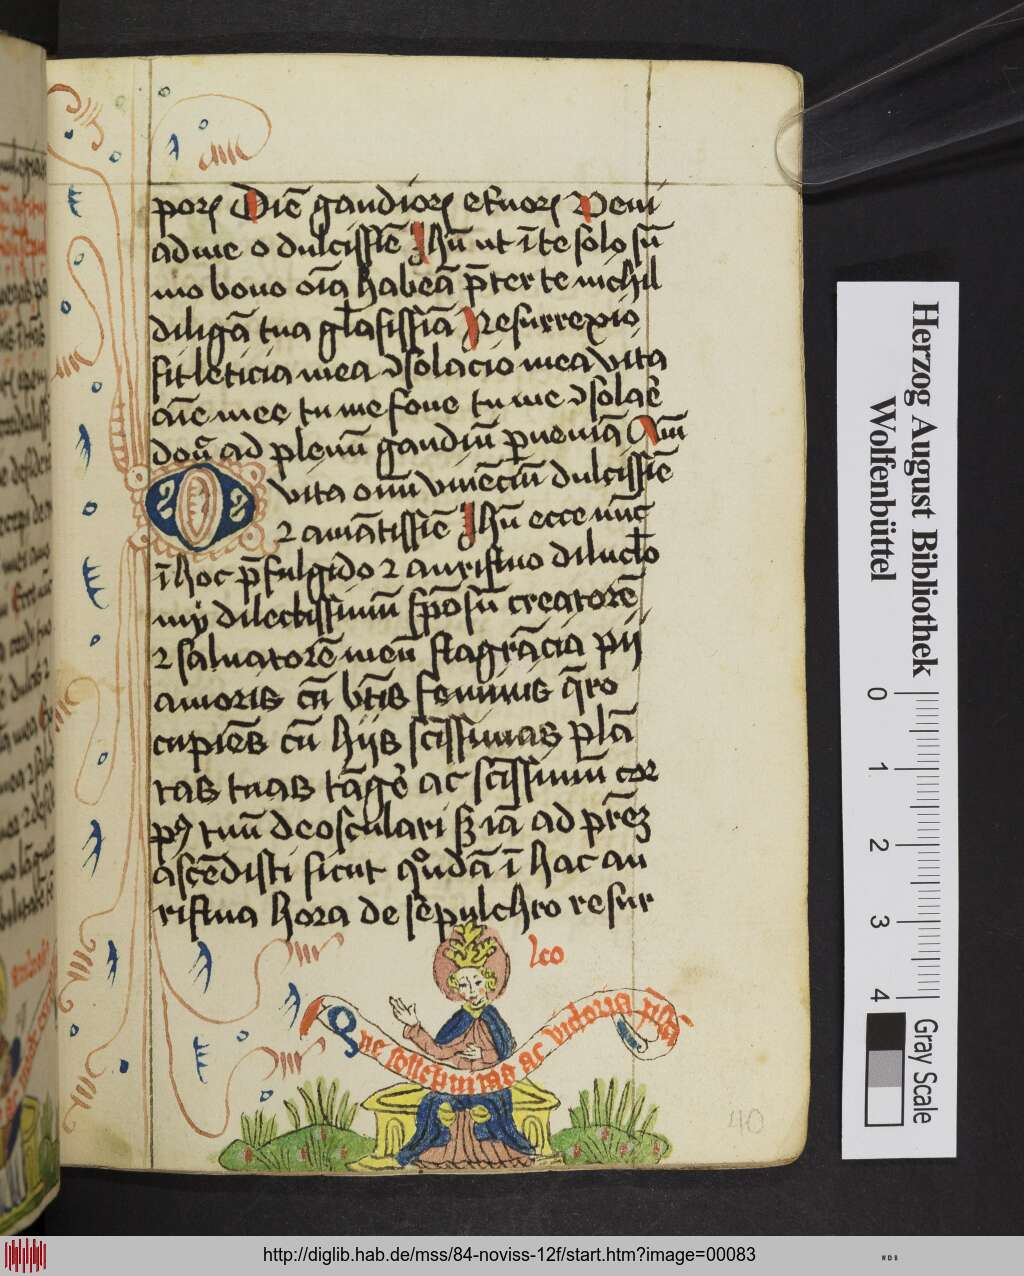 porꝝ Diē gaudiorꝝ et̄uorꝝ Veni
ad me o dulcissīe Ihū ut ī te solo sū
mo bono oīa habeā p̄ter te nichil
diligā tua gl̄asissīa Resurrexio
sit leticia mea ↄsolacio mea vita
aīe mee tu me foue tu me ↄsolaẽ
donꝰ ad plenū gaudiū ꝑueniā Am̄
O vita oīm viuēciū dulcissīe
⁊ amātissīe Ihū ecce nūc
ī hoc p̄fulgido ⁊ aurifluo diluclo
my dilectissimū sp̄osū creatorē
⁊ saluatorē meū flagrācia pij
amoris cū btīs feminis q̄ro
cupiēs cū hijs sc̄issimas plā
tas tuas tāgẽ ac sc̄issimū cor
pꝰ tuū deosculari sꝫ iā ad p̄rēꝫ
ascēdisti sicut qͦndā ī hac au
riflua hora de sepulchro resur
lco
Que sollēpnitas ac victoria
40
Herzog August Bibliothek
Wolfenbüttel
0 1 2 3 4
Gray Scale
http://diglib.hab.de/mss/84-noviss-12f/start.htm?image=00083